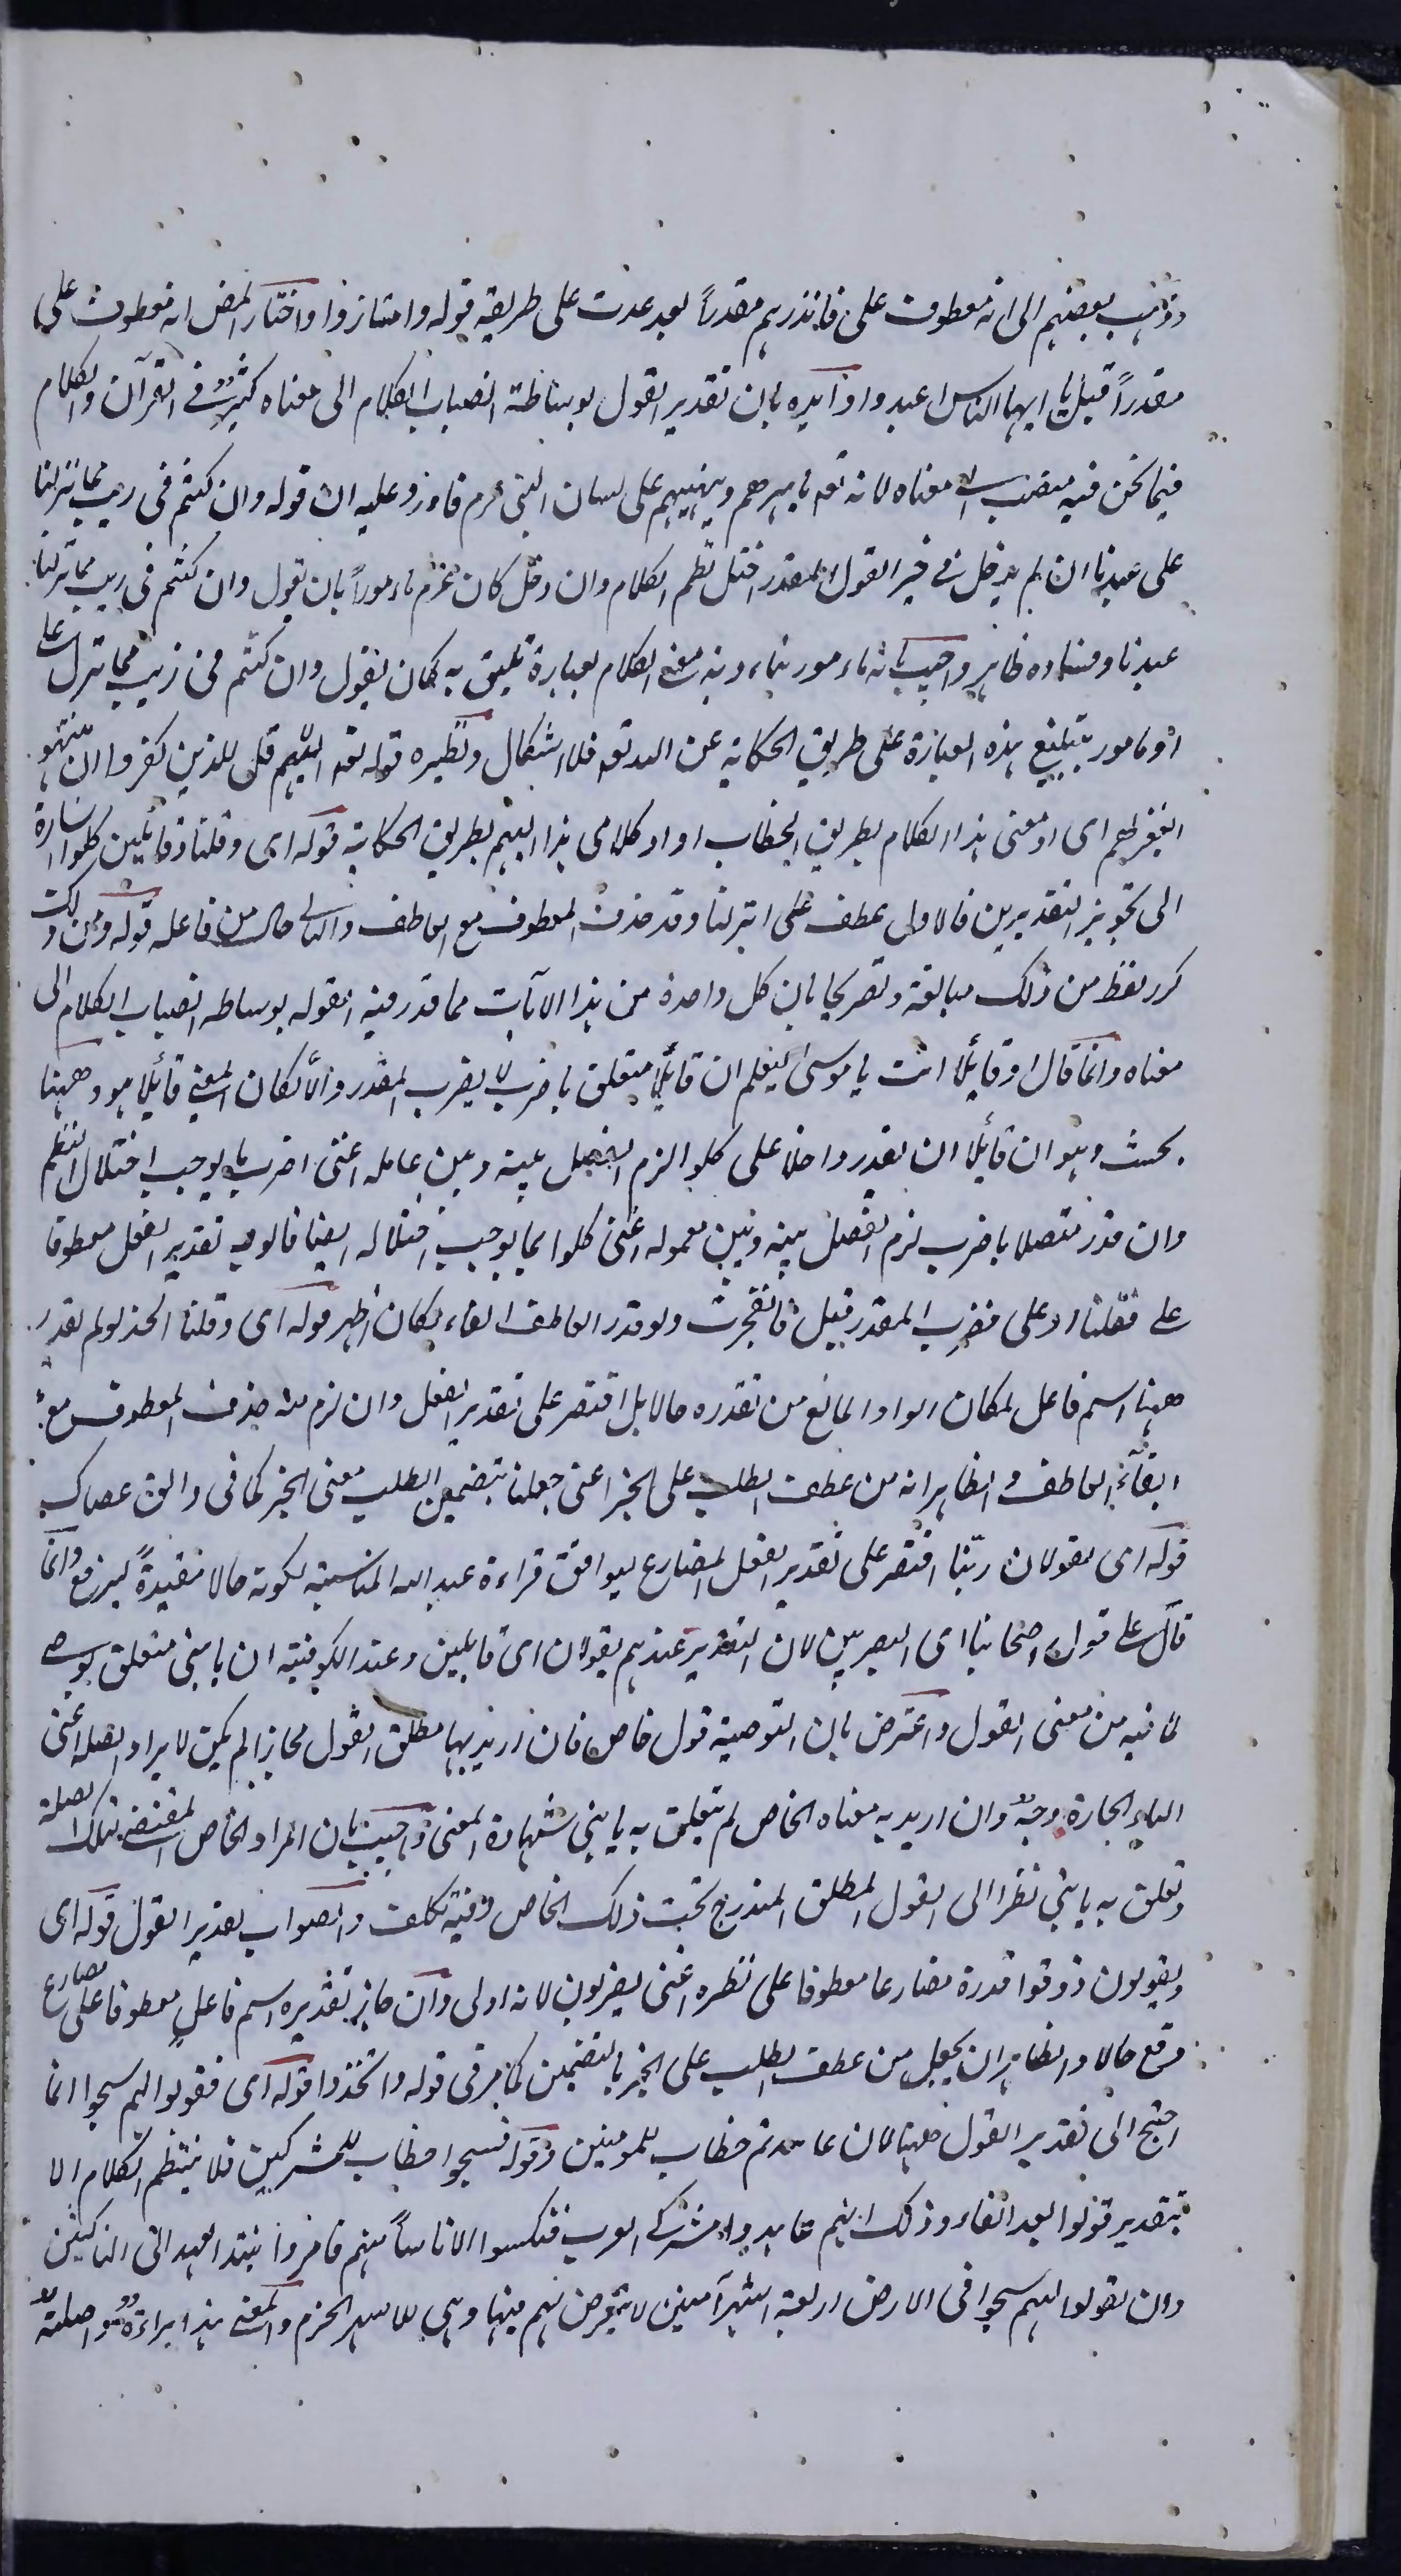 وذهب بعضهم الى انه معطوف على فانذرهم مقدراً بعد عدت على طريقة قوله وامتازوا واختار المض انه معطوف على
مقدراً قبل يا ايها الناس اعبدوا وايده بان تقدير القول بوساطة انصباب الكلام الى معناه كثير في القرآن والكلام
فيما نحن فيه منصب الى معناه لانه تعه يامرهم وينهيهم على لسان النبي عزم فاورد عليه ان قوله وان كنتم في ريب مما نزلنا
على عبدنا ان لم يدخل في حيز القول المقدر اختل نظم الكلام وان دخل كان عزم مامورا بان يقول وان كنتم في ريب مما نزلنا
عبدنا وفساده ظاهر واجيب بانه مامور بتادية معنى الكلام بعبارة تليق به كان يقول وان كنتم في ريب مما نزل على
او مامور بتبليغ هذه العبارة على طريق الحكاية عن الله تعه فلا اشكال ونظيره قوله تعه اللهم قل للذين كفروا ان ينتهوا
يغفر لهم اى اد معنى هذا الكلام بطريق الخطاب او اد كلامى هذا اليهم بطريق الحكاية قوله اى وقلنا وقائلين كلوا اشارة
الى تجويز التقديرين فالاولى عطف على انزلنا وقد حذف المعطوف مع العاطف والثانى حال من فاعله قوله ومن ذلك
كرر لفظ من ذلك مبالغة وتصريحا بان كل واحدة من هذا الآيات مما قدر فيه القول بوساطه انصباب الكلام الى
معناه وانما قال او قائلا انت يا موسى ليعلم ان قائلا متعلق باضرب لا بضرب المقدر والا لكان المعنى قائلا هو وههنا
بحث وهو ان قائلا ان يقدر داخلا على كلوا لزم الفصل بينه وبين عامله اعنى اضرب بما يوجب اختلال النظم
وان قدر متصلا باضرب لزم الفصل بينه وبين معموله اعنى كلوا بما يوجب اختلاله ايضا فالوجه تقدير الفعل معطوفا
على فقلنا او على فضرب المقدر قبل فانفجرت ولو قدر العاطف الفاء لكان اظهر قوله اى وقلنا الخذ ولم يقدر
ههنا اسم فاعل لمكان الواو المانع من تقدره حالا بل اقتصر على تقدير الفعل وان لزم منه حذف المعطوف مع
ابقاء العاطف و الظاهر انه من عطف الطلب على الخبر اعنى جعلنا بتضمين الطلب معنى الخبر كما فى والق عصاك
قوله اى يقولان ربنا اقتصر على تقدير الفعل المضارع ليوافق قراءة عبد الله المناسبة لكونه حالا مقيدة ليرفع وانما
قال على قول اصحابنا اى البصريين لان التقدير عندهم يقولان اى قايلين وعند الكوفية ان يا بنى متعلق بوصى
لما فيه من معنى القول واعترض بان التوصية قول خاص فان اريد بها مطلق القول مجازا لم يكن لايراد الصلة اعنى
الباء الجارة وجه وان اريد به معناه الخاص لم يتعلق به يا بني شهادة المعنى واجيب بان المراد الخاص المقتضى لتلك الصلة
وتعلق به يا بني نظرا الى القول المطلق المندرج تحت ذلك الخاص وفيه تكلف والصواب تقدير القول قوله اى
ويقولون ذوقوا قدره مضارعا معطوفا على نظره اعنى يضربون لانه اولى وان جاز تقديره اسم فاعل معطوفا على مضارع
وقع حالا والظاهر ان يجعل من عطف الطلب على الخبر بالتضمين كما مر فى قوله واتخذوا قوله اى فقولوا لهم سيحوا انما
احتيج الى تقدير القول ههنا لان عاهدتم خطاب للمومنين وقوله فسيحوا خطاب للمشركين فلا ينتظم الكلام الا
بتقدير قولوا بعد الفاء وذلك انهم عاهدوا مشركى العرب فنكسوا الا ناسا منهم فامروا بنبذ العهد الى الناكثين
وان يقولوا لهم سيحوا فى الارض اربعة اشهر آمنين لا يتعرض لهم فيها وهى الاشهر الحرم والمعنى هذا براءة واصلة